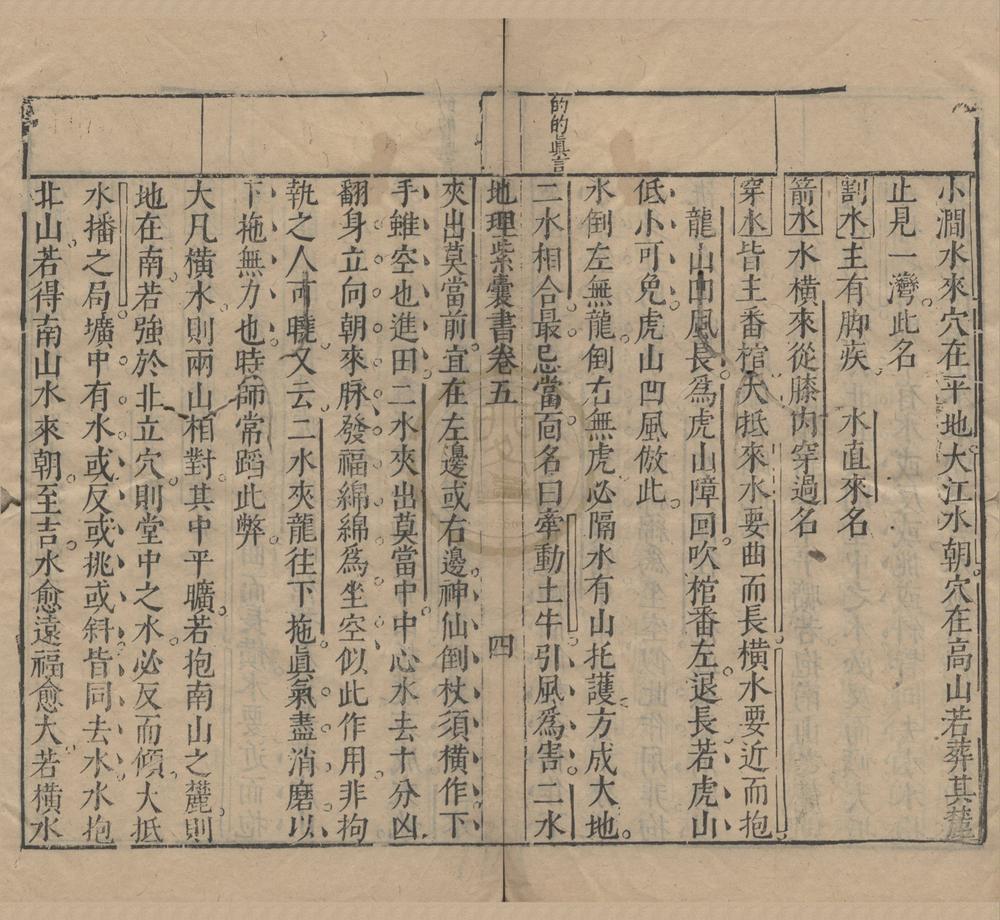 的的眞言
小澗水來穴在平地大江水朝穴在高山若葬其麓
止見一灣此名
割水主有脚疾　水直來名
箭水水橫來從膝內穿過名
穿水皆主番棺大抵來水要曲而長橫水要近而抱
龍山凹風長爲虎山障回吹棺番左退長若虎山
低小可免虎山凹風倣此
水倒左無龍倒右無虎必隔水有山托護方成大地
二水相合最忌當面名曰牽動土牛引風爲害二水
地理紫囊書卷五　四
夾出莫當前宜在左邊或右邊神仙倒杖須橫作下
手雖空也進田二水夾出莫當中中心水去十分凶
翻身立向朝來脉發福綿綿爲坐空似此作用非拘
執之人可曉又云二水夾龍往下拖眞氣盡消磨以
下拖無力也時師常蹈此弊
大凡橫水則兩山相對其中平曠若抱南山之麓則
地在南若強於北立穴則堂中之水必反而傾大抵
水播之局壙中有水或反或挑或斜皆同去水水抱
北山若得南山水來朝至吉水愈遠福愈大若橫水